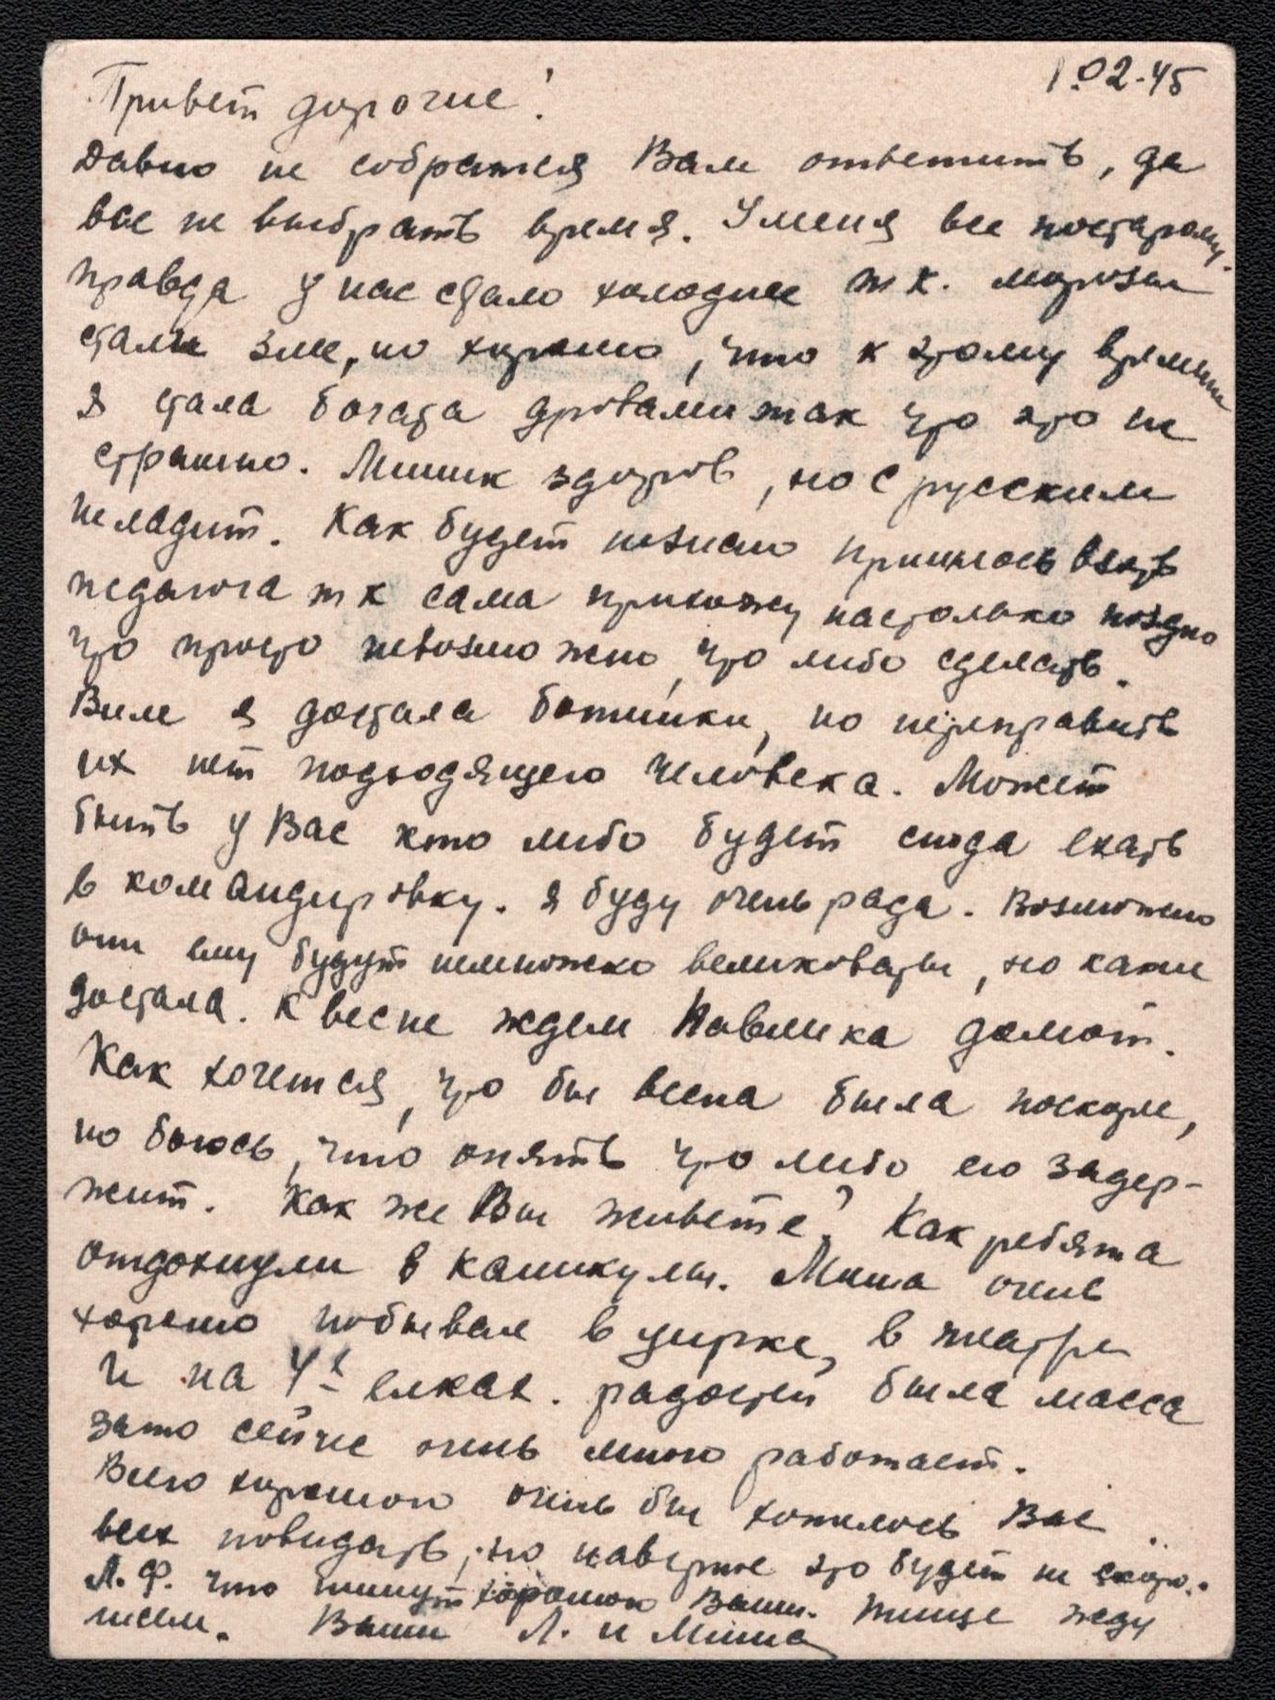 1.02-45
Привет дорогие!
Давно не собралась Вам ответить, да
все не выбрать время. У меня все постарому.
правда у нас стало холоднее т к. морозы
стали злее, но хорошо, что к этому времени
я стала богата дровами так что это не
страшно. Мишик здоров, но с русским
не ладит. Как будет не знаю пришлось взять
педагога т к сама прихожу настолько поздно
что просто невозможно что либо сделать.
Виле я достала ботинки, но переправить
их нет подходящего человека. Может
быть у Вас кто либо будет сюда ехать
в командировку. Я буду очень рада. Возможно
они ему будут немножко великоваты, но какие
достала. К весне ждем Павлика домой.
Как хочется, что бы весна была поскорее,
но боюсь, что опять что либо его задер-
жит. Как же Вы живете? Как ребята
отдохнули в каникулы. Миша очень
хорошо побывал в цирке, в театре
и на 4х елках. радостей была масса
зато сейчас очень много работает.
Всего хорошего очень бы хотелось Вас
всех повидать, но наверное это будет не скоро.
Л. Ф. что пишут хорошего Ваши. Пишите жду
писем. Ваши Л. и Миша